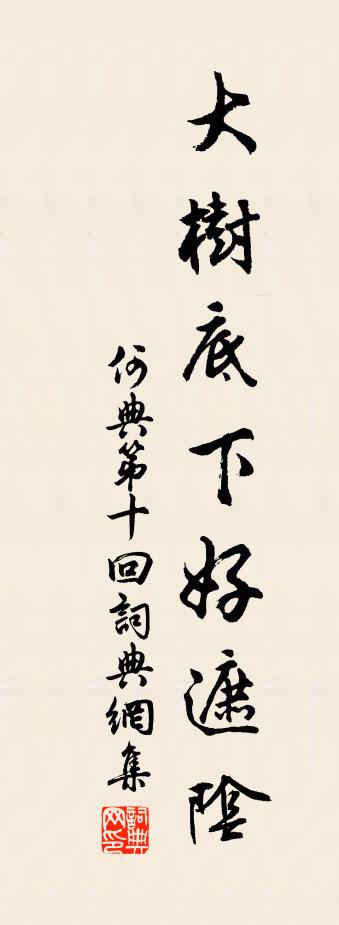 大樹底下好遮陰
何典第十回詞典網集
詞典网印